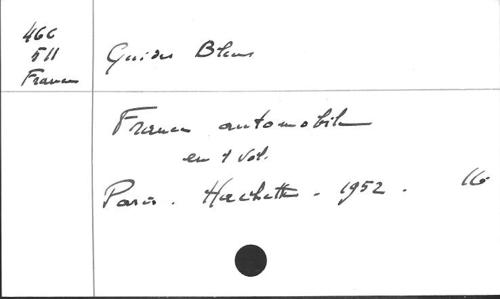 466
511
France
Guides Bleus
France automobile
en 1 vol.
Paris. Hachette. 1952. 16